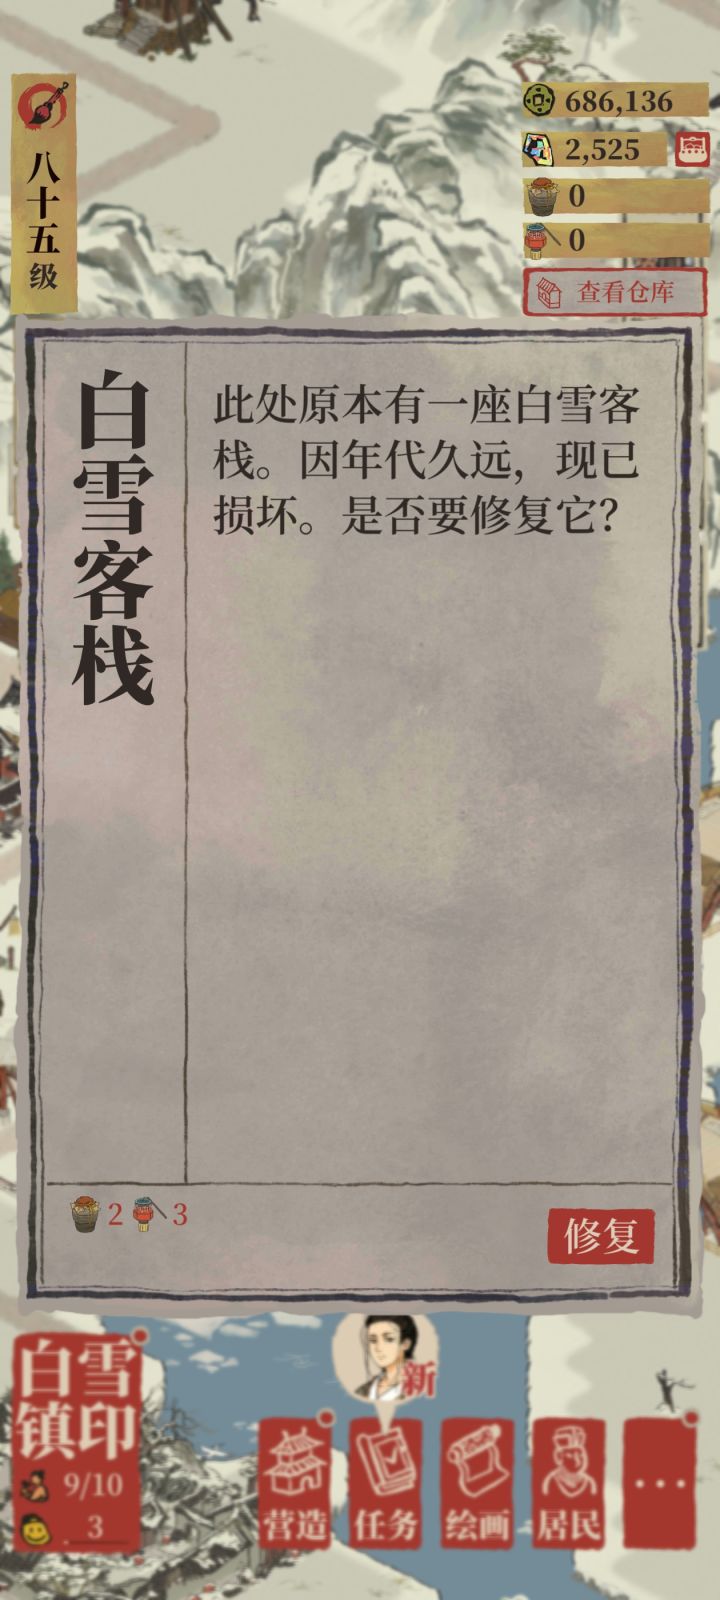 八十五级
686,136
2,525
0
0
查看仓库
白雪客栈
此处原本有一座白雪客
栈。因年代久远，现已
损坏。是否要修复它？
2 3
修复
白雪
镇印
9/10
3
新
营造
任务
绘画
居民
...